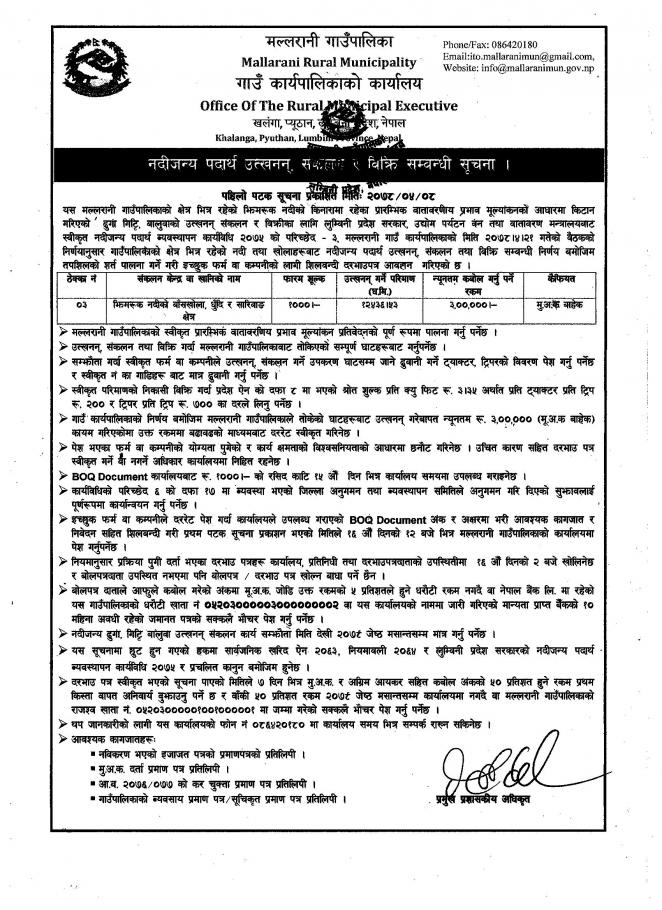 मल्लरानी गाउँपालिका
Mallarani Rural Municipality
गाउँ कार्यपालिकाको कार्यालय
Office Of The Rural Municipal Executive
खलंगा, प्यूठान, नेपाल
Khalanga, Pyuthan, Lumbini Province, Nepal
Phone/Fax: 086420180
Email:ito.mallaranimun@gmail.com,
Website: info@mallaranimun.gov.np
नदीजन्य पदार्थ उत्खनन्, संकलन र विक्रि सम्बन्धी सूचना ।
पहिलो पटक सूचना प्रकाशित मितिः २०७८/०४/०८
यस मल्लरानी गाउँपालिकाको क्षेत्र भित्र रहेको झिमरूक नदीको किनारामा रहेका प्रारम्भिक वातावरणीय प्रभाव मूल्यांकनको आधारमा किटान
गरिएको ढुगां मिट्टि, बालुवाको उत्खनन् संकलन र विक्रीका लागि लुम्विनी प्रदेश सरकार, उद्योग पर्यटन वन तथा वातावरण मन्त्रालयबाट
स्वीकृत नदीजन्य पदार्थ ब्यवस्थापन कार्यविधि २०७५ को परिच्छेद - ३, मल्लरानी गाउँ कार्यपालिकाको मिति २०७८।४।२१ गतेको बैठकको
निर्णयानुसार गाउँपालिकाको क्षेत्र भित्र रहेको नदी तथा खोलाहरूबाट नदीजन्य पदार्थ उत्खनन्, संकलन तथा विक्रि सम्वन्धी निर्णय बमोजिम
तपशिलको शर्त पालना गर्ने गरी इच्छुक फर्म वा कम्पनीको लागी शिलवन्दी दरभाउपत्र आवलन गरिएको छ ।
ठेक्का नं | संकलन केन्द्र वा खानिको नाम | फारम शूल्क | उत्खनन् गर्ने परिमाण (घ.मि.) | न्यूनतम कबोल गर्नु पर्ने रकम | कैफियत
०३ | झिमरूक नदीको बाँसखोला, धुँदि र सारिवाङ क्षेत्र | १०००।- | १२५३६।५३ | ३,००,०००।- | मु.अ.क बाहेक
➤ मल्लरानी गाउँपालिकाको स्वीकृत प्रारम्भिक वातावरणिय प्रभाव मूल्यांकन प्रतिवेदनको पूर्ण रूपमा पालना गर्नु पर्नेछ ।
➤ उत्खनन्, संकलन तथा विक्रि गर्दा मल्लरानी गाउँपालिकाबाट तोकिएको सम्पूर्ण घाटहरूबाट गर्नुपर्नेछ ।
➤ सम्झौता गर्दा स्वीकृत फर्म वा कम्पनीले उत्खनन्, संकलन गर्ने उपकरण घाटसम्म जाने ढुवानी गर्ने ट्याक्टर, ट्रिपरको विवरण पेश गर्नु पर्नेछ
र स्वीकृत नं का गाडिहरू बाट मात्र ढुवानी गर्नु पर्नेछ ।
➤ स्वीकृत परिमाणको निकासी विक्रि गर्दा प्रदेश ऐन को दफा ८ मा भएको श्रोत शुल्क प्रति क्यु फिट रू. ३।३५ अर्थात प्रति ट्याक्टर प्रति ट्रिप
रू. २०० र ट्रिपर प्रति ट्रिप रू. ७०० का दरले लिनु पर्नेछ ।
➤ गाउँ कार्यपालिकाको निर्णय बमोजिम मल्लरानी गाउँपालिकाले तोकेको घाटहरूबाट उत्खनन् गरेबापत न्यूनतम रू. ३,००,००० (मू.अ.क बाहेक)
कायम गरिएकोमा उक्त रकममा बढाबढको माध्यमबाट दररेट स्वीकृत गरिनेछ ।
➤ पेश भएका फर्म वा कम्पनीको योग्यता पुगेको र कार्य क्षमताको विश्वसनियताको आधारमा छनौट गरिनेछ । उचित कारण सहित दरभाउ पत्र
स्वीकृत गर्ने वा नगर्ने अधिकार कार्यालयमा निहित रहनेछ ।
➤ BOQ Document कार्यालयबाट रू. १०००।- को रसिद काटि १५ औं दिन भित्र कार्यालय समयमा उपलब्ध गराइनेछ ।
➤ कार्यविधिको परिच्छेद ६ को दफा १७ मा ब्यवस्था भएको जिल्ला अनुगमन तथा ब्यवस्थापन समितिले अनुगमन गरि दिएको सुझावलाई
पूर्णरूपमा कार्यान्वयन गर्नु पर्नेछ ।
➤ इच्छुक फर्म वा कम्पनीले दररेट पेश गर्दा कार्यालयले उपलब्ध गराएको BOQ Document अंक र अक्षरमा भरी आवश्यक कागजात र
निवेदन सहित शिलवन्दी गरी प्रथम पटक सूचना प्रकाशन भएको मितिले १६ औं दिनको १२ बजे भित्र मल्लरानी गाउँपालिकाको कार्यालयमा
पेश गर्नुपर्नेछ ।
➤ नियमानुसार प्रक्रिया पुगी दर्ता भएका दरभाउ पत्रहरू कार्यालय, प्रतिनिधी तथा दरभाउपत्रदाताको उपस्थितीमा १६ औं दिनको २ बजे खोलिनेछ
र बोलपत्रदाता उपस्थित नभएमा पनि बोलपत्र / दरभाउ पत्र खोल्न बाधा पर्ने छैन ।
➤ बोलपत्र दाताले आफुले कबोल गरेको अंकमा मू.अ.क. जोडि उक्त रकमको ५ प्रतिशतले हुने धरौटी रकम नगदै वा नेपाल बैंक लि. मा रहेको
यस गाउँपालिकाको धरौटी खाता नं ०५२०३००००००३०००००००००२ वा यस कार्यालयको नाममा जारी गरिएको मान्यता प्राप्त बैंकको १०
महिना अवधी रहेको जमानत पत्रको सक्कलै भौचर पेश गर्नु पर्नेछ ।
➤ नदीजन्य ढुगां, मिट्टि बालुवा उत्खनन् संकलन कार्य सम्झौता मिति देखी २०७९ जेष्ठ मसान्तसम्म मात्र गर्नु पर्नेछ ।
➤ यस सूचनामा छुट हुन गएको हकमा सार्वजनिक खरिद ऐन २०६३, नियमावली २०६४ र लुम्विनी प्रदेश सरकारको नदीजन्य पदार्थ
ब्यवस्थापन कार्यविधी २०७५ र प्रचलित कानुन बमोजिम हुनेछ ।
➤ दरभाउ पत्र स्वीकृत भएको सूचना पाएको मितिले ७ दिन भित्र मु.अ.क. र अग्रिम आयकर सहित कबोल अंकको ५० प्रतिशत हुने रकम प्रथम
किस्ता बापत अनिवार्य बुझाउनु पर्ने छ र वाँकी ५० प्रतिशत रकम २०७९ जेष्ठ मसान्तसम्म कार्यालयमा नगदै वा मल्लरानी गाउँपालिकाको
राजश्व खाता नं. ०५२०३०००००१००१०००००१ मा जम्मा गरेको सक्कलै भौचर पेश गर्नु पर्नेछ ।
➤ थप जानकारीको लागी यस कार्यालयको फोन नं ०८६४२०१८० मा कार्यालय समय भित्र सम्पर्क राख्न सकिनेछ ।
➤ आवश्यक कागजातहरूः
▪ नविकरण भएको इजाजत पत्रको प्रमाणपत्रको प्रतिलिपी ।
▪ मु.अ.क. दर्ता प्रमाण पत्र प्रतिलिपी ।
▪ आ.ब. २०७६/०७७ को कर चुक्ता प्रमाण पत्र प्रतिलिपी ।
▪ गाउँपालिकाको ब्यवसाय प्रमाण पत्र/सूचिकृत प्रमाण पत्र प्रतिलिपी ।
प्रमुख प्रशासकीय अधिकृत